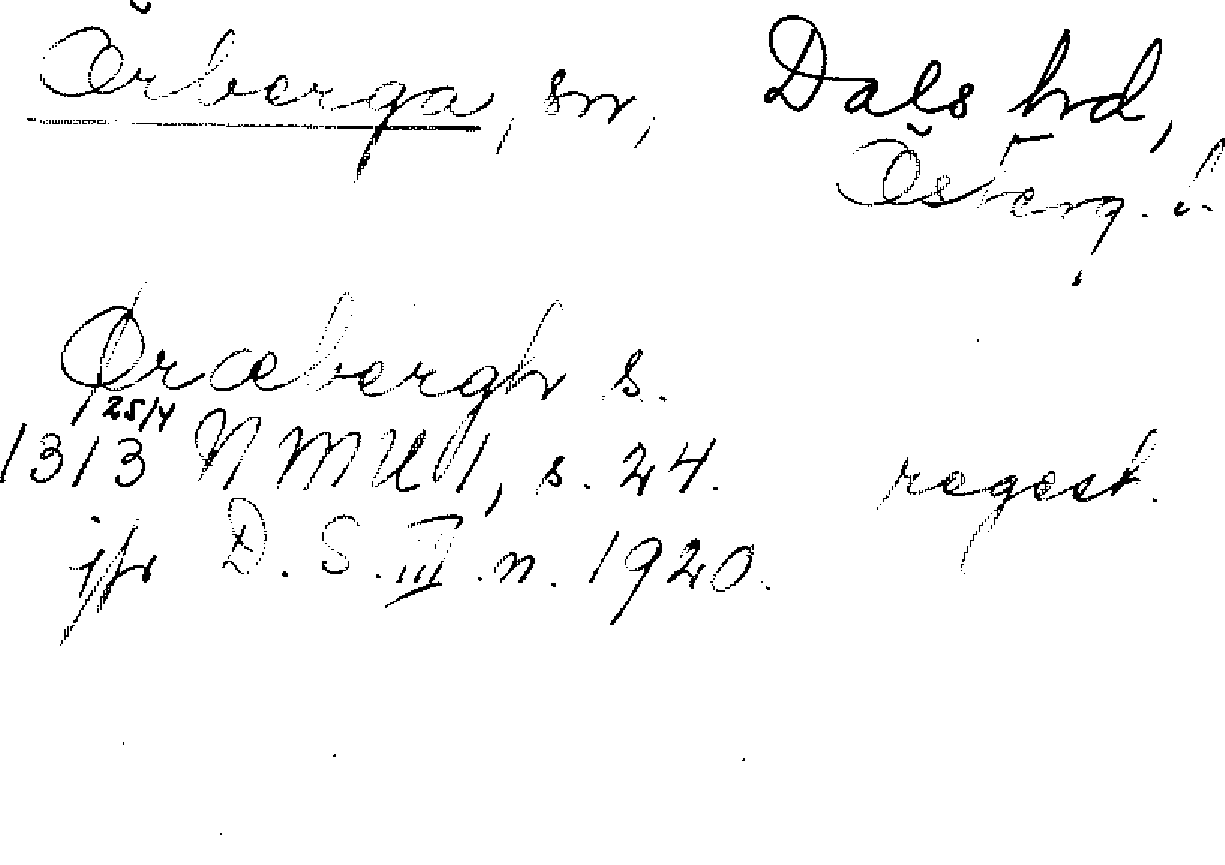 Örberga, sn, Dals hd,
Österg. l.
Øræbergh s.
25/4
1313 NMU 1, s. 24. regest.
jfr D. S. III n. 1920.